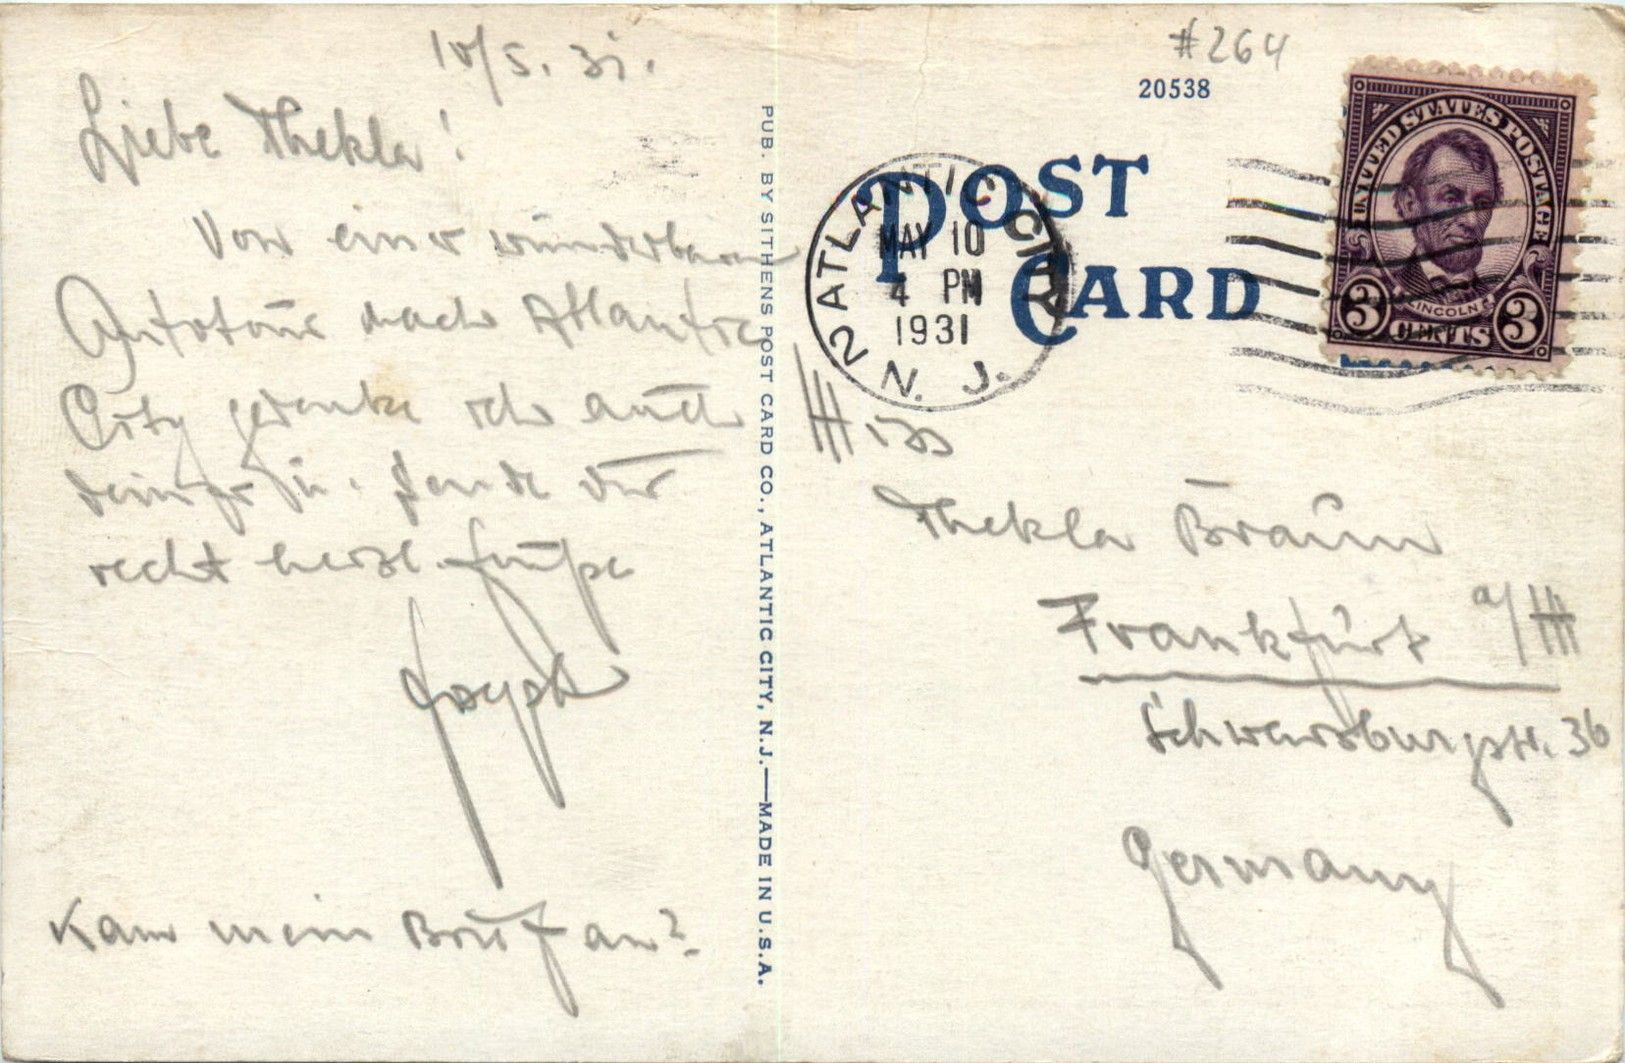 10/5. 31.
Liebe Thekla!
Von einer wunderbaren
Autotour nach Atlantic
City gedenke ich auch
deiner u. sende Dir
recht herzl. Grüße
Joseph
Kam mein Brief an?
PUB. BY SITHENS POST CARD CO., ATLANTIC CITY, N.J.—MADE IN U.S.A.
#264
20538
POST CARD
ATLANTIC CITY
2
MAY 10
4 PM
1931
N. J.
UNITED STATES POSTAGE
LINCOLN
3 CENTS 3
Miss
Thekla Braun
Frankfurt a/M
Schwarzburgstr. 36
Germany